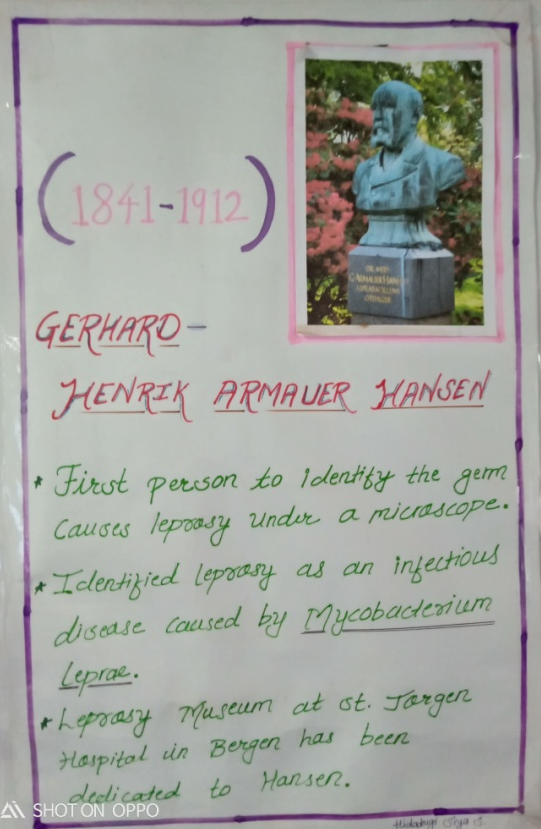 (1841-1912)
G. ARMAUER HANSEN
GERHARD-
HENRIK ARMAUER HANSEN
* First person to identify the germ
causes leprosy under a microscope.
* Identified leprosy as an infectious
disease caused by Mycobacterium
Leprae.
* Leprosy Museum at St. Jorgen
Hospital in Bergen has been
dedicated to Hansen.
SHOT ON OPPO